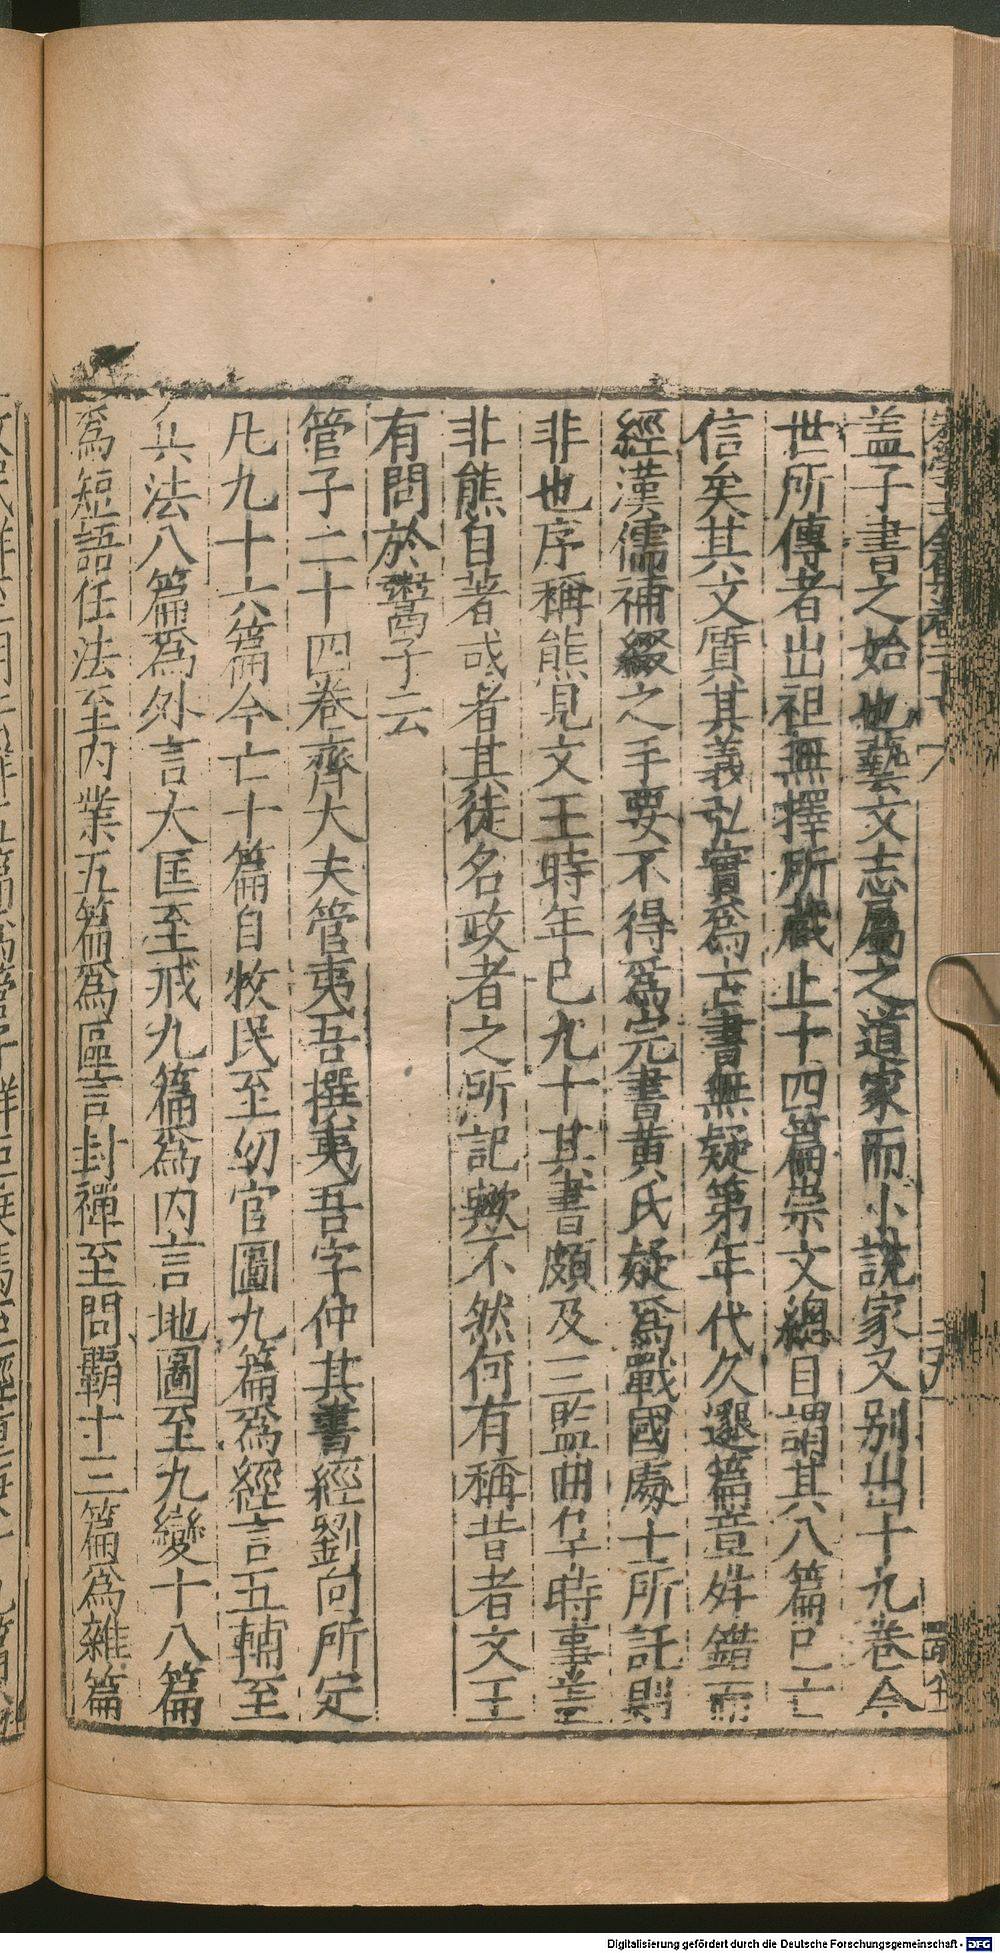 蓋子書之始也藝文志屬之道家而小說家又別出十九卷今
世所傳者出祖無擇所藏止十四篇崇文總目謂其八篇已亡
信矣其文質其義弘實爲古書無疑第年代久邈篇章舛錯而
經漢儒補綴之手要不得爲完書黃氏疑爲戰國處士所託則
非也序稱熊見文王時年已九十其書頗及三監曲阜時事蓋
非熊自著或者其徒名政者之所記歟不然何有稱昔者文王
有問於鬻子云
管子二十四卷齊大夫管夷吾撰夷吾字仲其書經劉向所定
凡九十六篇今亡十篇自牧民至幼官圖九篇爲經言五輔至
兵法八篇爲外言大匡至戒九篇爲内言地圖至九變十八篇
爲短語任法至内業五篇爲區言封禪至問霸十三篇爲雜篇
Digitalisierung gefördert durch die Deutsche Forschungsgemeinschaft - DFG